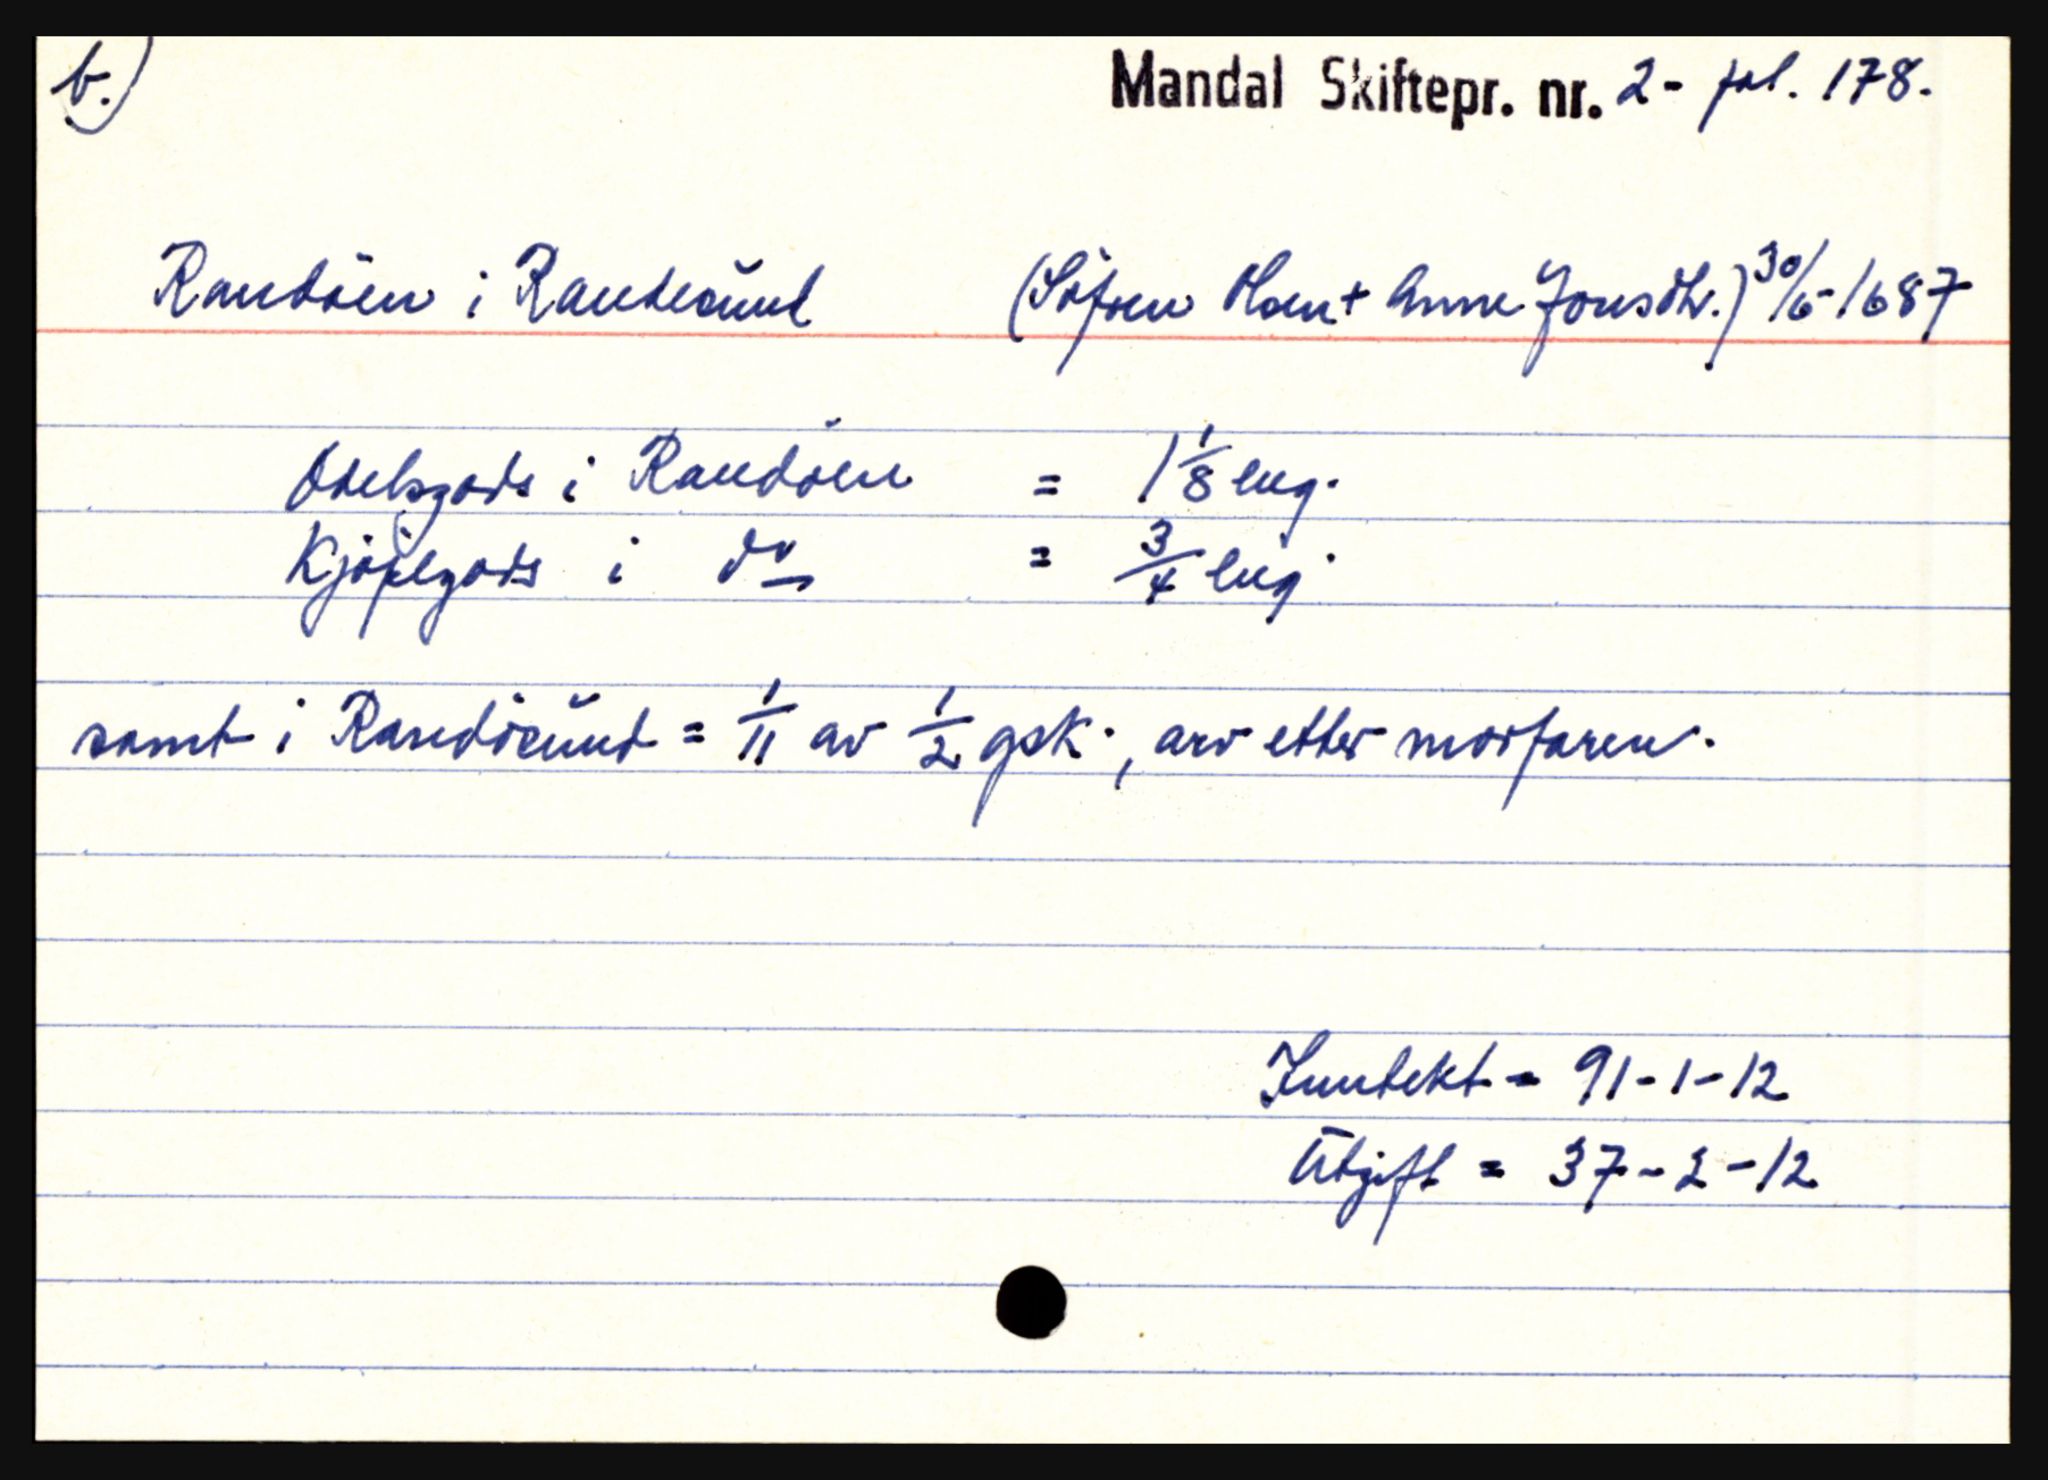 b.)
Mandal Skiftepr. nr. 2- fol. 178.
Randöen i Randesund (Söfren Olsen + Anne Jonsdtr.) 30/6-1687
Odelsgods i Randöen = 1 1/8 eng.
Kjöpegods i do = 3/4 eng.
samt i Randösund = 1/11 av 1/2 gsk., arv etter morfaren.
Inntekt = 91-1-12
Utgift = 37-2-12